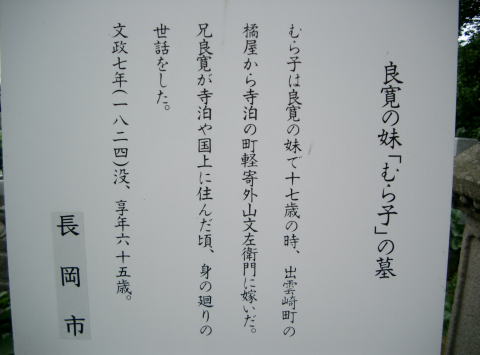 良寛の妹「むら子」の墓
むら子は良寛の妹で十七歳の時、出雲崎町の
橘屋から寺泊の町軽寄外山文左衛門に嫁いだ。
兄良寛が寺泊や国上に住んだ頃、身の廻りの
世話をした。
文政七年(一八二四)没、享年六十五歳。
長岡市